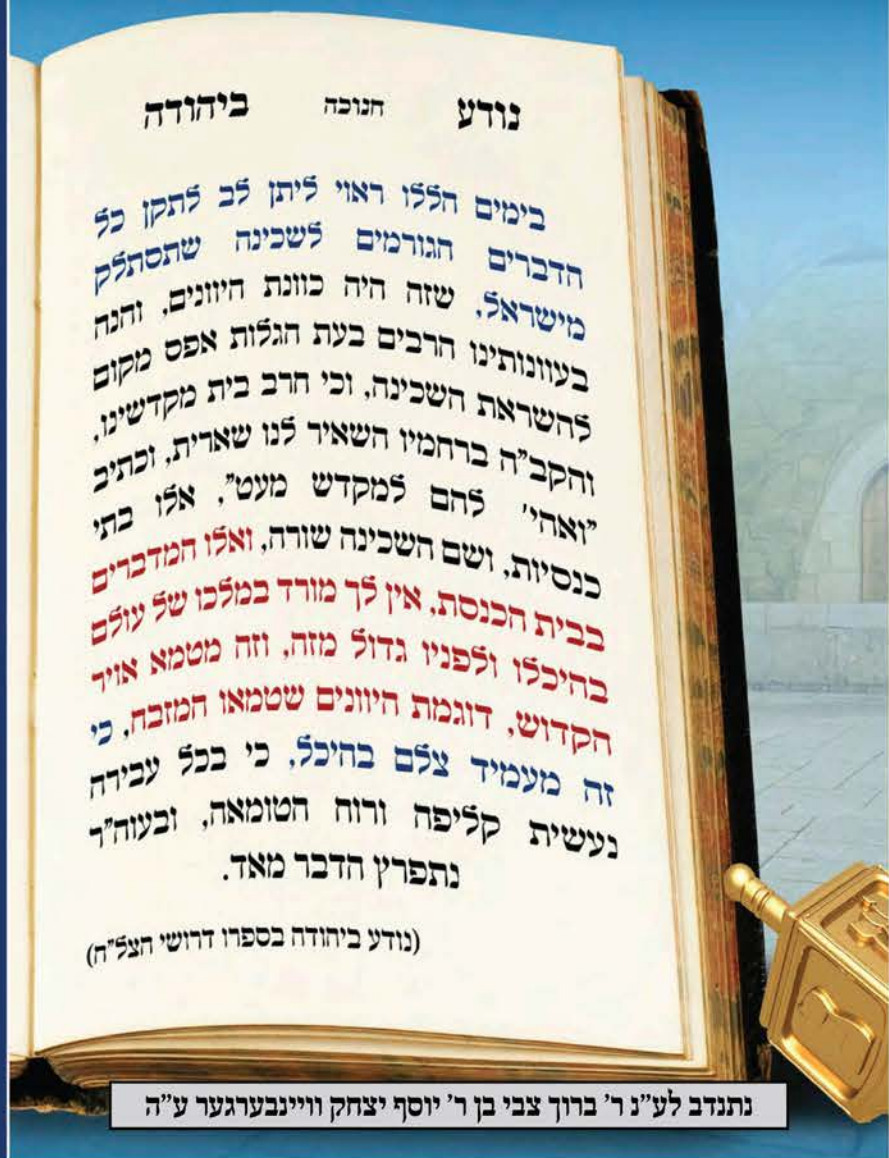 נודע חנוכה ביהודה
בימים הללו ראוי ליתן לב לתקן כל
הדברים הגורמים לשכינה שתסתלק
מישראל, שזה היה כוונת היוונים, והנה
בעוונותינו הרבים בעת הגלות אפס מקום
להשראת השכינה, וכי חרב בית מקדשינו,
והקב"ה ברחמיו השאיר לנו שארית, וכתיב
"ואהי' להם למקדש מעט", אלו בתי
כנסיות, ושם השכינה שורה, ואלו המדברים
בבית הכנסת, אין לך מורד במלכו של עולם
בהיכלו ולפניו גדול מזה, וזה מטמא אויר
הקדוש, דוגמת היוונים שטמאו המזבח, כי
זה מעמיד צלם בהיכל, כי בכל עבירה
נעשית קליפה ורוח הטומאה, ובעוה"ר
נתפרץ הדבר מאד.
(נודע ביהודה בספרו דרושי הצל"ח)
נתנדב לע"נ ר' ברוך צבי בן ר' יוסף יצחק וויינבערגער ע"ה